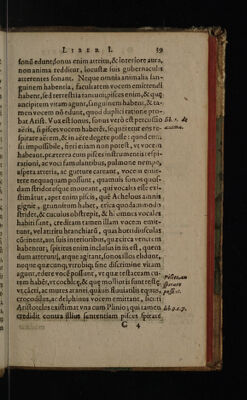 LIBER I. 39
sonũ edunt: sonus enim attritu, & interiore aura,
non anima redditur, locustæ suis gubernaculis
atterentes sonant. Neque omnia animalia san-
guinem habentia, facultatem vocem emittendi
habent, sed terrestria tantum, pisces enim, & quæ
ancipitem vitam agunt, sanguinem habent, & ta-
men vocem nõ edunt, quod duplici ratione pro-
bat Arist. Vox est sonus, sonus verò est percussio
aëris, si pisces vocem haberẽt, sequeretur eos
aërem, & in aëre degere posse: quod cum
sit impossibile, fieri etiam non potest, vt vocem
habeant. præterea cum pisces instrumentis respi-
rationi, ac voci famulantibus, pulmone nempe,
aspera arteria, ac gutture careant, vocem emit-
tere nequaquam possunt, quamuis sonos quos-
dam stridoresque moueant, qui vocales esse exi-
stimatur, aper enim piscis, quẽ Achelous amnis
gignit, grunnitum habet,
stridet, & cuculus obstrepit, & hi omnes vocales
habiti sunt, creditam tamen illam vocem emit-
tunt, vel attritu branchiarũ, quas horridiusculas
cõtinent, aut suis interioribus, quæ circa ventrem
habentur, spiritus enim inclusus in iis est, quem
dum atterunt, atque agitant, sonos illos eliduut,
neque quæcunq; vtrobiq; sine discrimine vitam
agunt, edere vocẽ possunt, vt quæ testaceam cu-
tem habẽt, vt cochleæ, & quę molliori sunt
vt cácri, ac mures aranei, quáuis fluuiatilis equus,
crocodilus, ac delphinus vocem emittant, licèti
Aristoteles existimat vna cum Plinio; qui tamen
credidit contra illius sententiam pisces spirare,
lib. 2. de
anima.
Pisces an
spirare
possint.
lib. 9. c. 7.
C 4